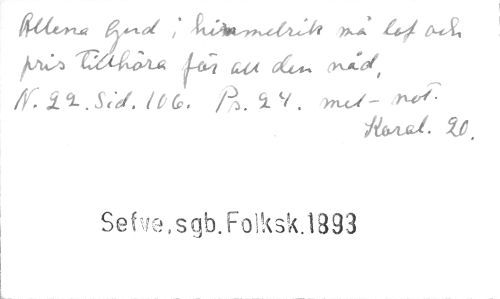 Allena Gud i himmelrik må lof och
pris tillhöra för all den nåd,
N. 22. Sid. 106. Ps. 24. mel-not.
Koral. 20.
Sefve, sgb. Folksk. 1893